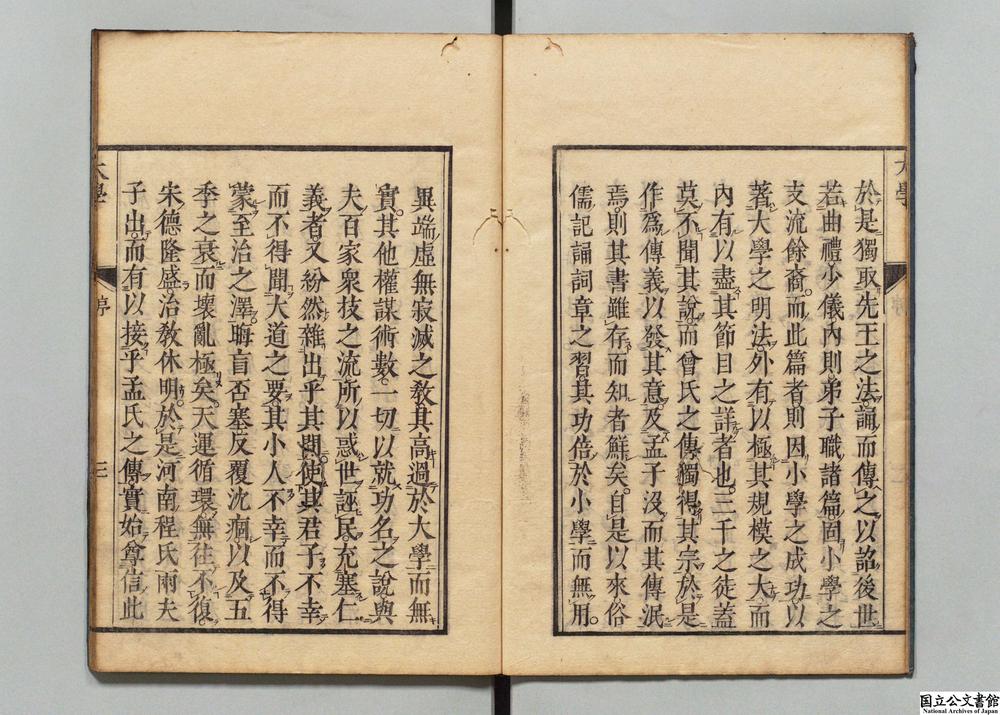 大學
序
於是獨取先王之法誦而傳之以詔後世
若曲禮少儀內則弟子職諸篇固小學之
支流餘裔而此篇者則因小學之成功以
著大學之明法外有以極其規模之大而
內有以盡其節目之詳者也三千之徒蓋
莫不聞其說而曾氏之傳獨得其宗於是
作爲傳義以發其意及孟子沒而其傳泯
焉則其書雖存而知者鮮矣自是以來俗
儒記誦詞章之習其功倍於小學而無用
異端虛無寂滅之敎其高過於大學而無
實其他權謀術數一切以就功名之說與
夫百家衆技之流所以惑世誣民充塞仁
義者又紛然雜出乎其閒使其君子不幸
而不得聞大道之要其小人不幸而不得
蒙至治之澤晦盲否塞反覆沈痼以及五
季之衰而壞亂極矣天運循環無往不復
宋德隆盛治敎休明於是河南程氏兩夫
子出而有以接乎孟氏之傳實始尊信此
大學
序
三
国立公文書館
National Archives of Japan